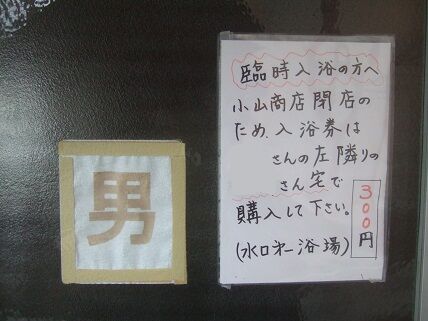 男
臨時入浴の方へ
小山商店閉店の
ため、入浴券は
さんの左隣りの
さん宅で
購入して下さい。
(水口第一浴場)
300円